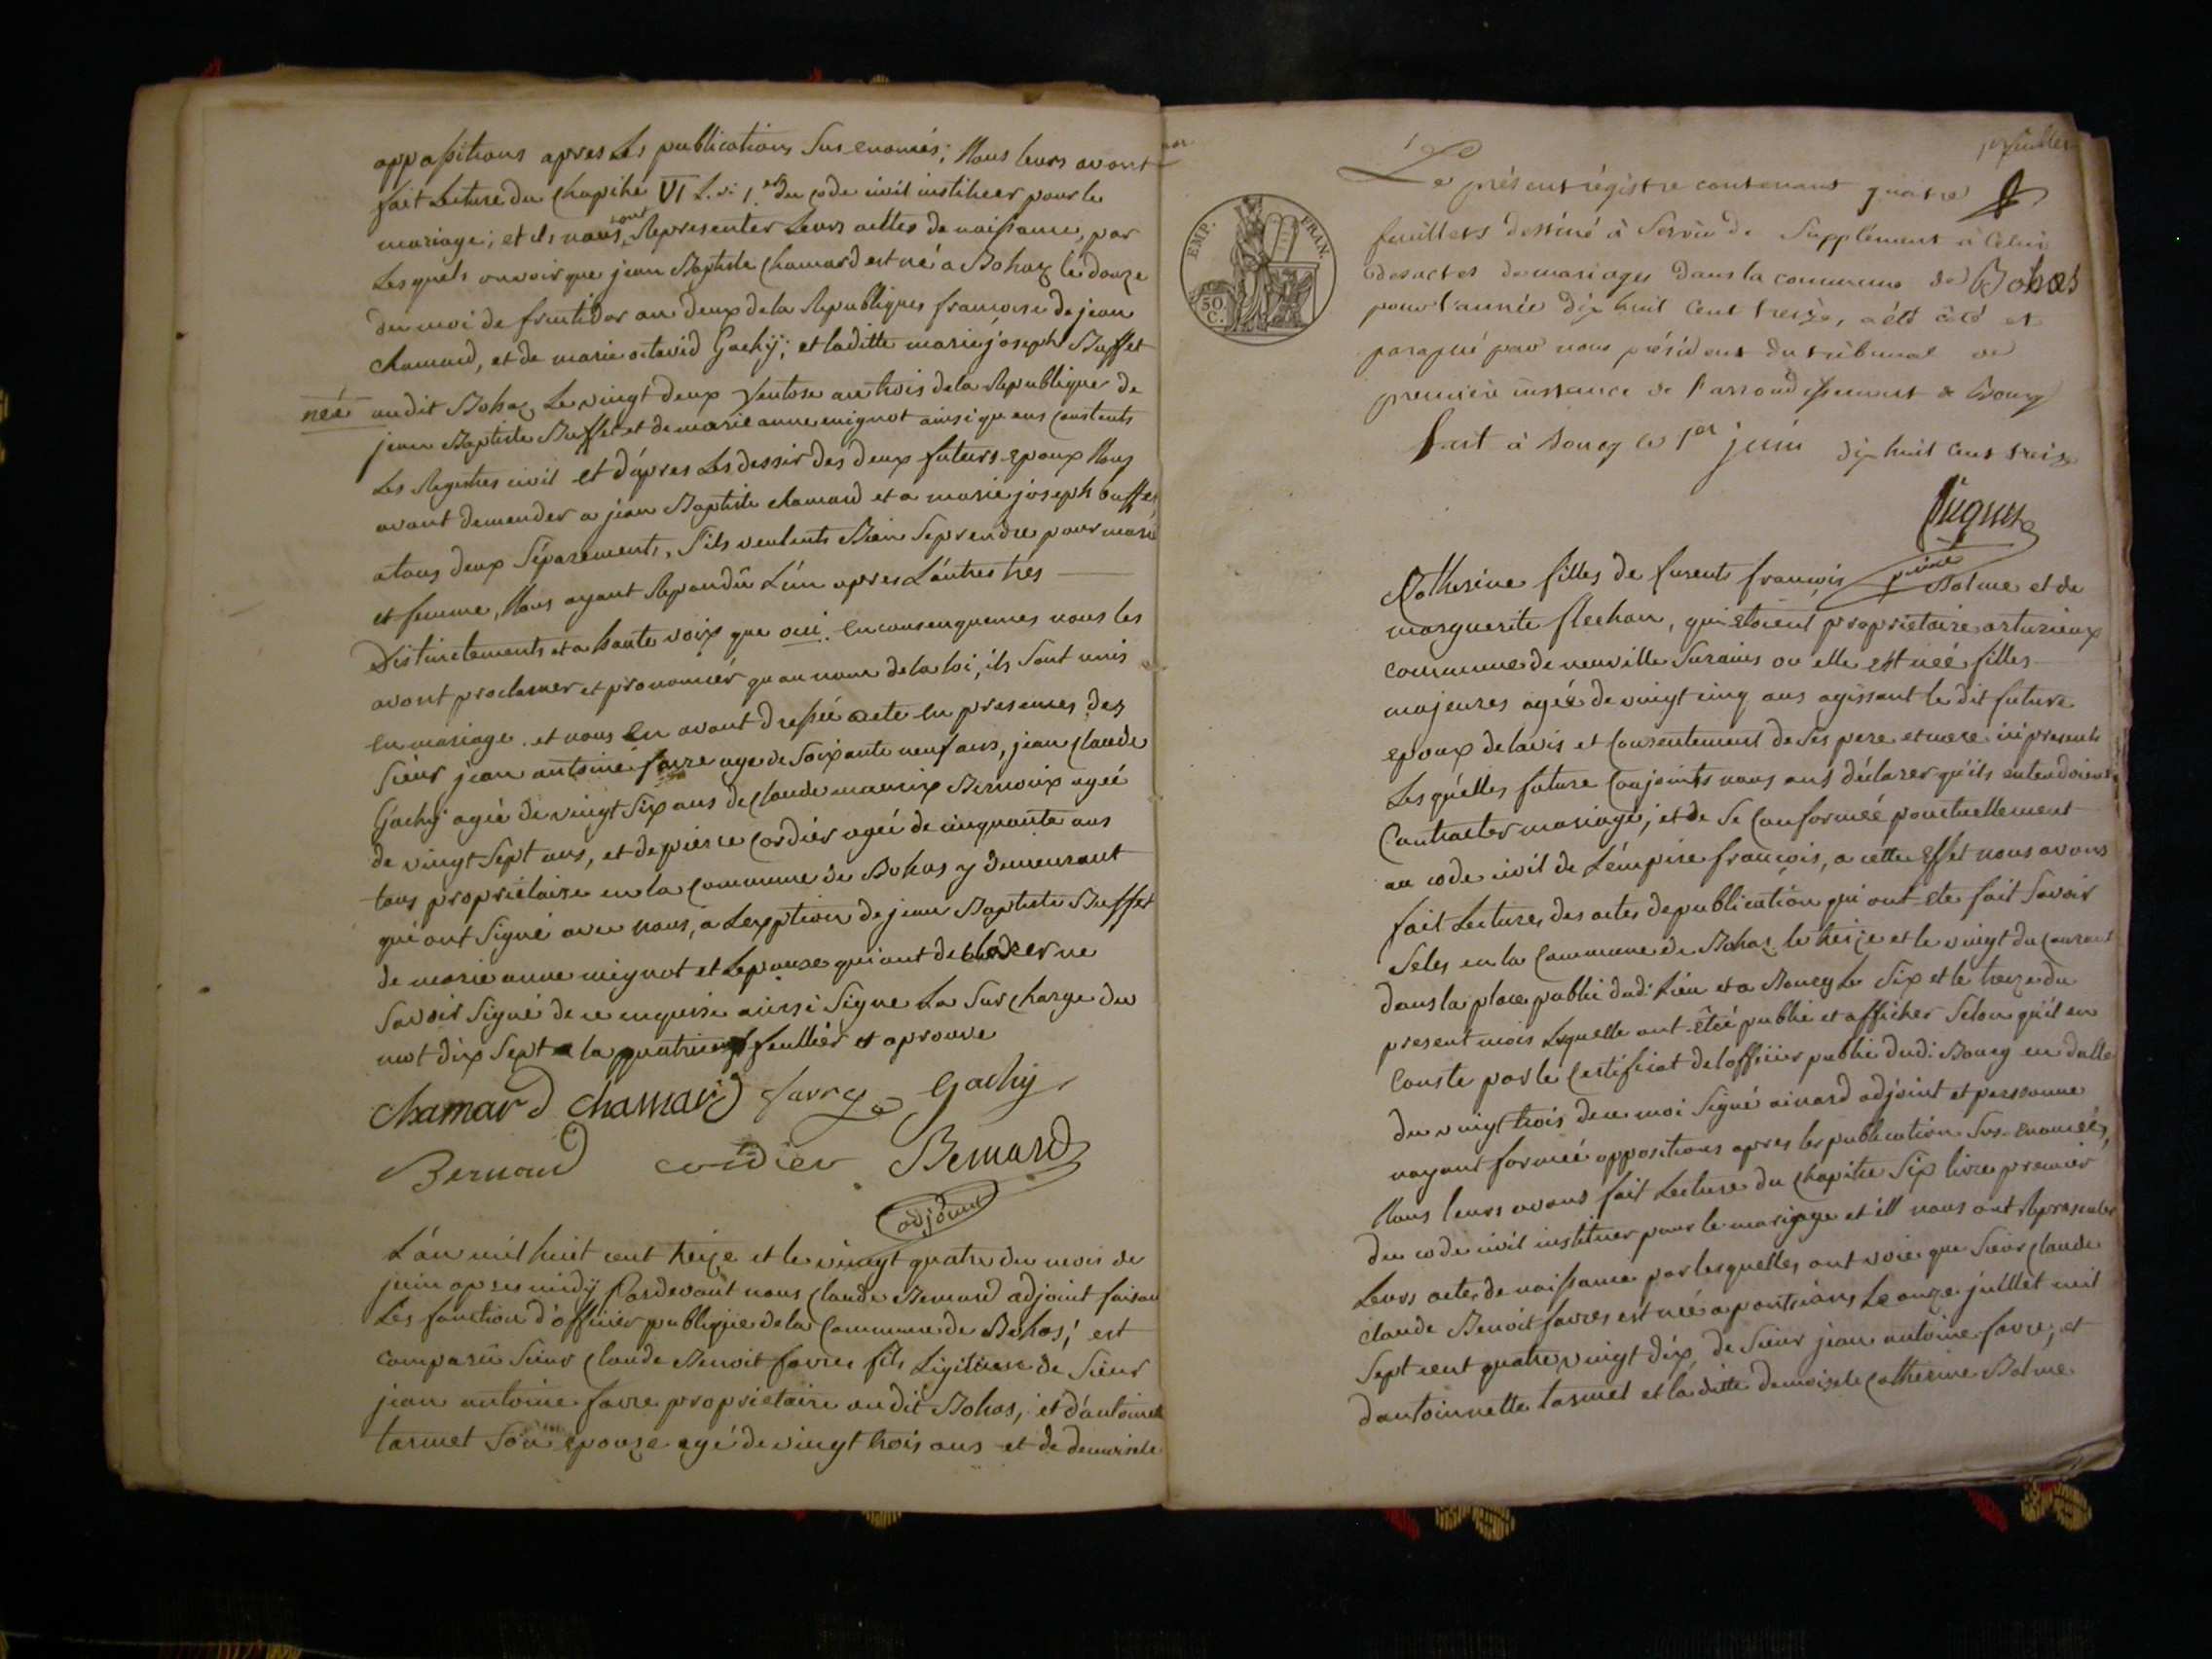 oppositions apres les publications sus enomés; Nous leurs avont
fait Lecture du Chapitre VI L.vi 1.er du code civil instituer pour le
mariage; et ils nous ont Representer Leurs acttes de naissance, par
Lesquels on voir que jean Baptiste Chamard est né a Bohaz le douze
du moi de fructidor an deux de la Republiques francoise de jean
chamard, et de marie octavid Gachÿ; et laditte marie joseph Buffet
neé audit Bohaz Le vingt deux Ventose an trois de la Republique de
jean Baptiste Buffet et de marie anne mignot ainsi que eus constents
Les Registres civil et d'ápres Les dessir des deux futurs epoux Nous
avont demender a jean Baptiste chamard et a marie joseph buffet
a tous deux Séparements, S'ils veulents Bien Se prendre pour mari
et femme, Nous ayant Repondû L'ún apres L'áutres tres
Distinctements et a haute voix que oui. En consenquences nous les
avont proclamer et prononcér qu au nom de la loi, ils Sont unis
en mariage. et nous en avont dressée acte en presences des
Sieur jean antoine favre age de Soixante neuf ans, jean Claude
Gachÿ ageé de vingt Six ans de Claude marcix Bernoix ageé
de vingt Sept ans, et de pierre Cordier ageé de cinquante ans
tous propriétaire en la Commune de Bohas y demeurant
qui ont Signé avec nous, a Lexption de jean Baptiste Buffet
de marie anne mignot et Lepouse qui ont declarer ne
Savoir Signé de ce enquerir ainsi Signe La Sur charge du
mot dix Sept a la quatrieme feuillér et aprouve
Chamard chamard favre Gachy
Bernard cordier Bernard
adjoint
L'án mil huit cent treize et le vingt quatre du mois de
juin apres midÿ Pardevant nous Claude Bernard adjoint faisan
Les fonction d'officier publique de la Commune de Bohas; est
comparu Sieur Claude Benoit favres fils Ligitime de Sieur
jean antoine favre proprietaire audit Bohas, et d'antoinette
tarmet Son epouse agé de vingt trois ans et de demoisele
1er feuillet
Le présent régistre contenant quatre
feuillets destiné à Servir de Supplément à Celui
des actes de mariages dans la commune de Bohas
pour l'année dix huit Cent treize, a été coté et
paraphé par nous président du tribunal de
première instance de l'arrondissement de Bourg
fait à Bourg le 1er juin dix huit Cent treize
EMP. FRAN.
50 C.
Catherine filles de furents françois Bolme et de
marguerite flechon, qui etoient proprietaire arturieux
commune de neuville Surains ou elle est neé filles
majeures ageé de vingt cinq ans agissant le dit future
epoux de lavis et Consentement de Ses pere et mere ici presents
Les quélles future Conjoints nous ont déclarer qu'ils entendoient
Contracter mariage, et de Se Conformeé ponctuellement
au code civil de L'émpire françois, a cette Effet nous avons
fait Lectures des actes de publication qui ont ete fait Savoir
Seles en la Commune de Bohaz le treize et le vingt du Courant
dans la place public dudi Lieu et a Bourg Le Six et le treize du
present mois Lequelle ont êteé publié et afficher Selon qu'il en
Conste par le Certificat de lofficier public dudi Bourg en datte
du vingt trois de ce moi Signé ainard adjoint et perssonne
nayant formeé oppositions apres les publication Sus enomeés,
Nous leurs avons fait Lecture du Chapitre Six livre premier
du code civil instituer pour le mariage et ill nous ont Representer
Leurs actes de naissance par lesquelles ont voie que Sieur Claude
Claude Benoit favres est neé a pontdains Le onze juillet mil
Sept cent quatre vingt dix, de Sieur jean antoine favre; et
dantoinnette tarmet et la ditte demoisele Catherine Bolme